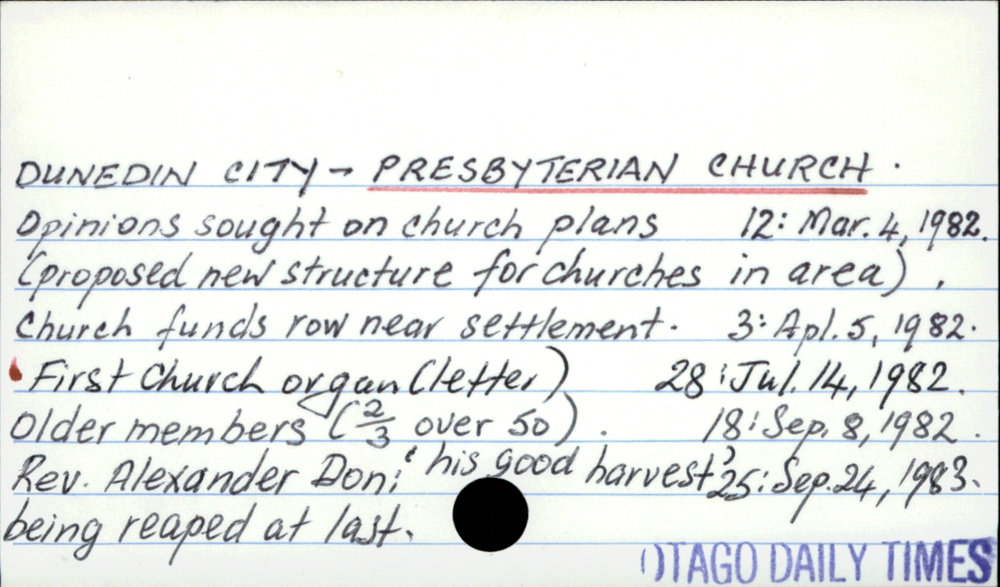 DUNEDIN CITY - PRESBYTERIAN CHURCH.
Opinions sought on church plans 12: Mar. 4, 1982.
(proposed new structure for churches in area).
Church funds row near settlement. 3: Apl. 5, 1982.
First Church organ (letter) 28: Jul. 14, 1982.
Older members (2/3 over 50). 18: Sep. 8, 1982.
Rev. Alexander Don: 'his good harvest' 25: Sep. 24, 1983.
being reaped at last.
OTAGO DAILY TIMES